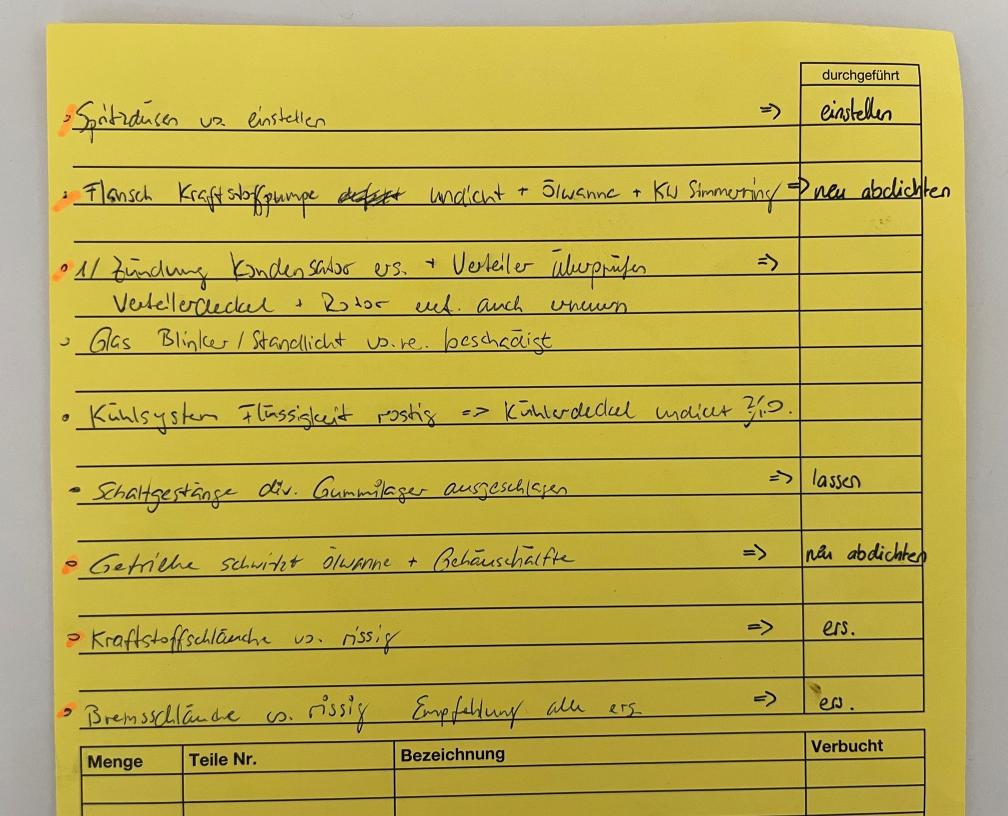 durchgeführt
• Spritzdüsen vo. einstellen => einstellen
• Flansch Kraftstoffpumpe undicht + Ölwanne + KW Simmerring => neu abdichten
• 1/ Zündung Kondensator ers. + Verteiler überprüfen =>
Verteilerdeckel + Rotor evt. auch erneuern
• Glas Blinker / Standlicht vo. re. beschädigt
• Kühlsystem Flüssigkeit rostig => Kühlerdeckel undicht
• Schaltgestänge div. Gummilager ausgeschlagen => lassen
• Getriebe schwitzt Ölwanne + Gehäuschälfte => neu abdichten
• Kraftstoffschläuche vo. rissig => ers.
• Bremsschläuche vo. rissig Empfehlung alle ers => ers.
Menge Teile Nr. Bezeichnung Verbucht